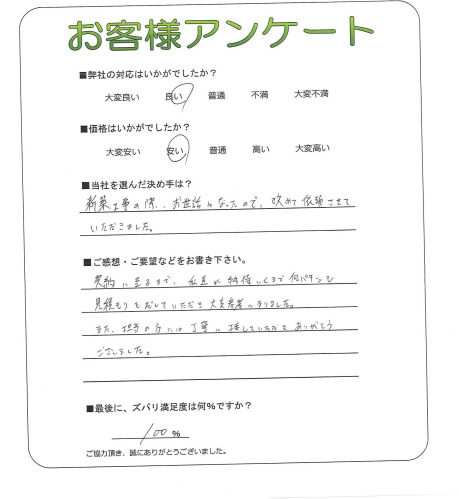 お客様アンケート
■弊社の対応はいかがでしたか？
大変良い 良い 普通 不満 大変不満
■価格はいかがでしたか？
大変安い 安い 普通 高い 大変高い
■当社を選んだ決め手は？
新築工事の際、お世話になったので、改めて依頼させて
いただきました。
■ご感想・ご要望などをお書き下さい。
契約に至るまで、私達が納得いくまで何パターンも
見積もりを出していただき大変参考になりました。
また、担当の方には丁寧に接していただきありがとう
ございました。
■最後に、ズバリ満足度は何％ですか？
100 ％
ご協力頂き、誠にありがとうございました。